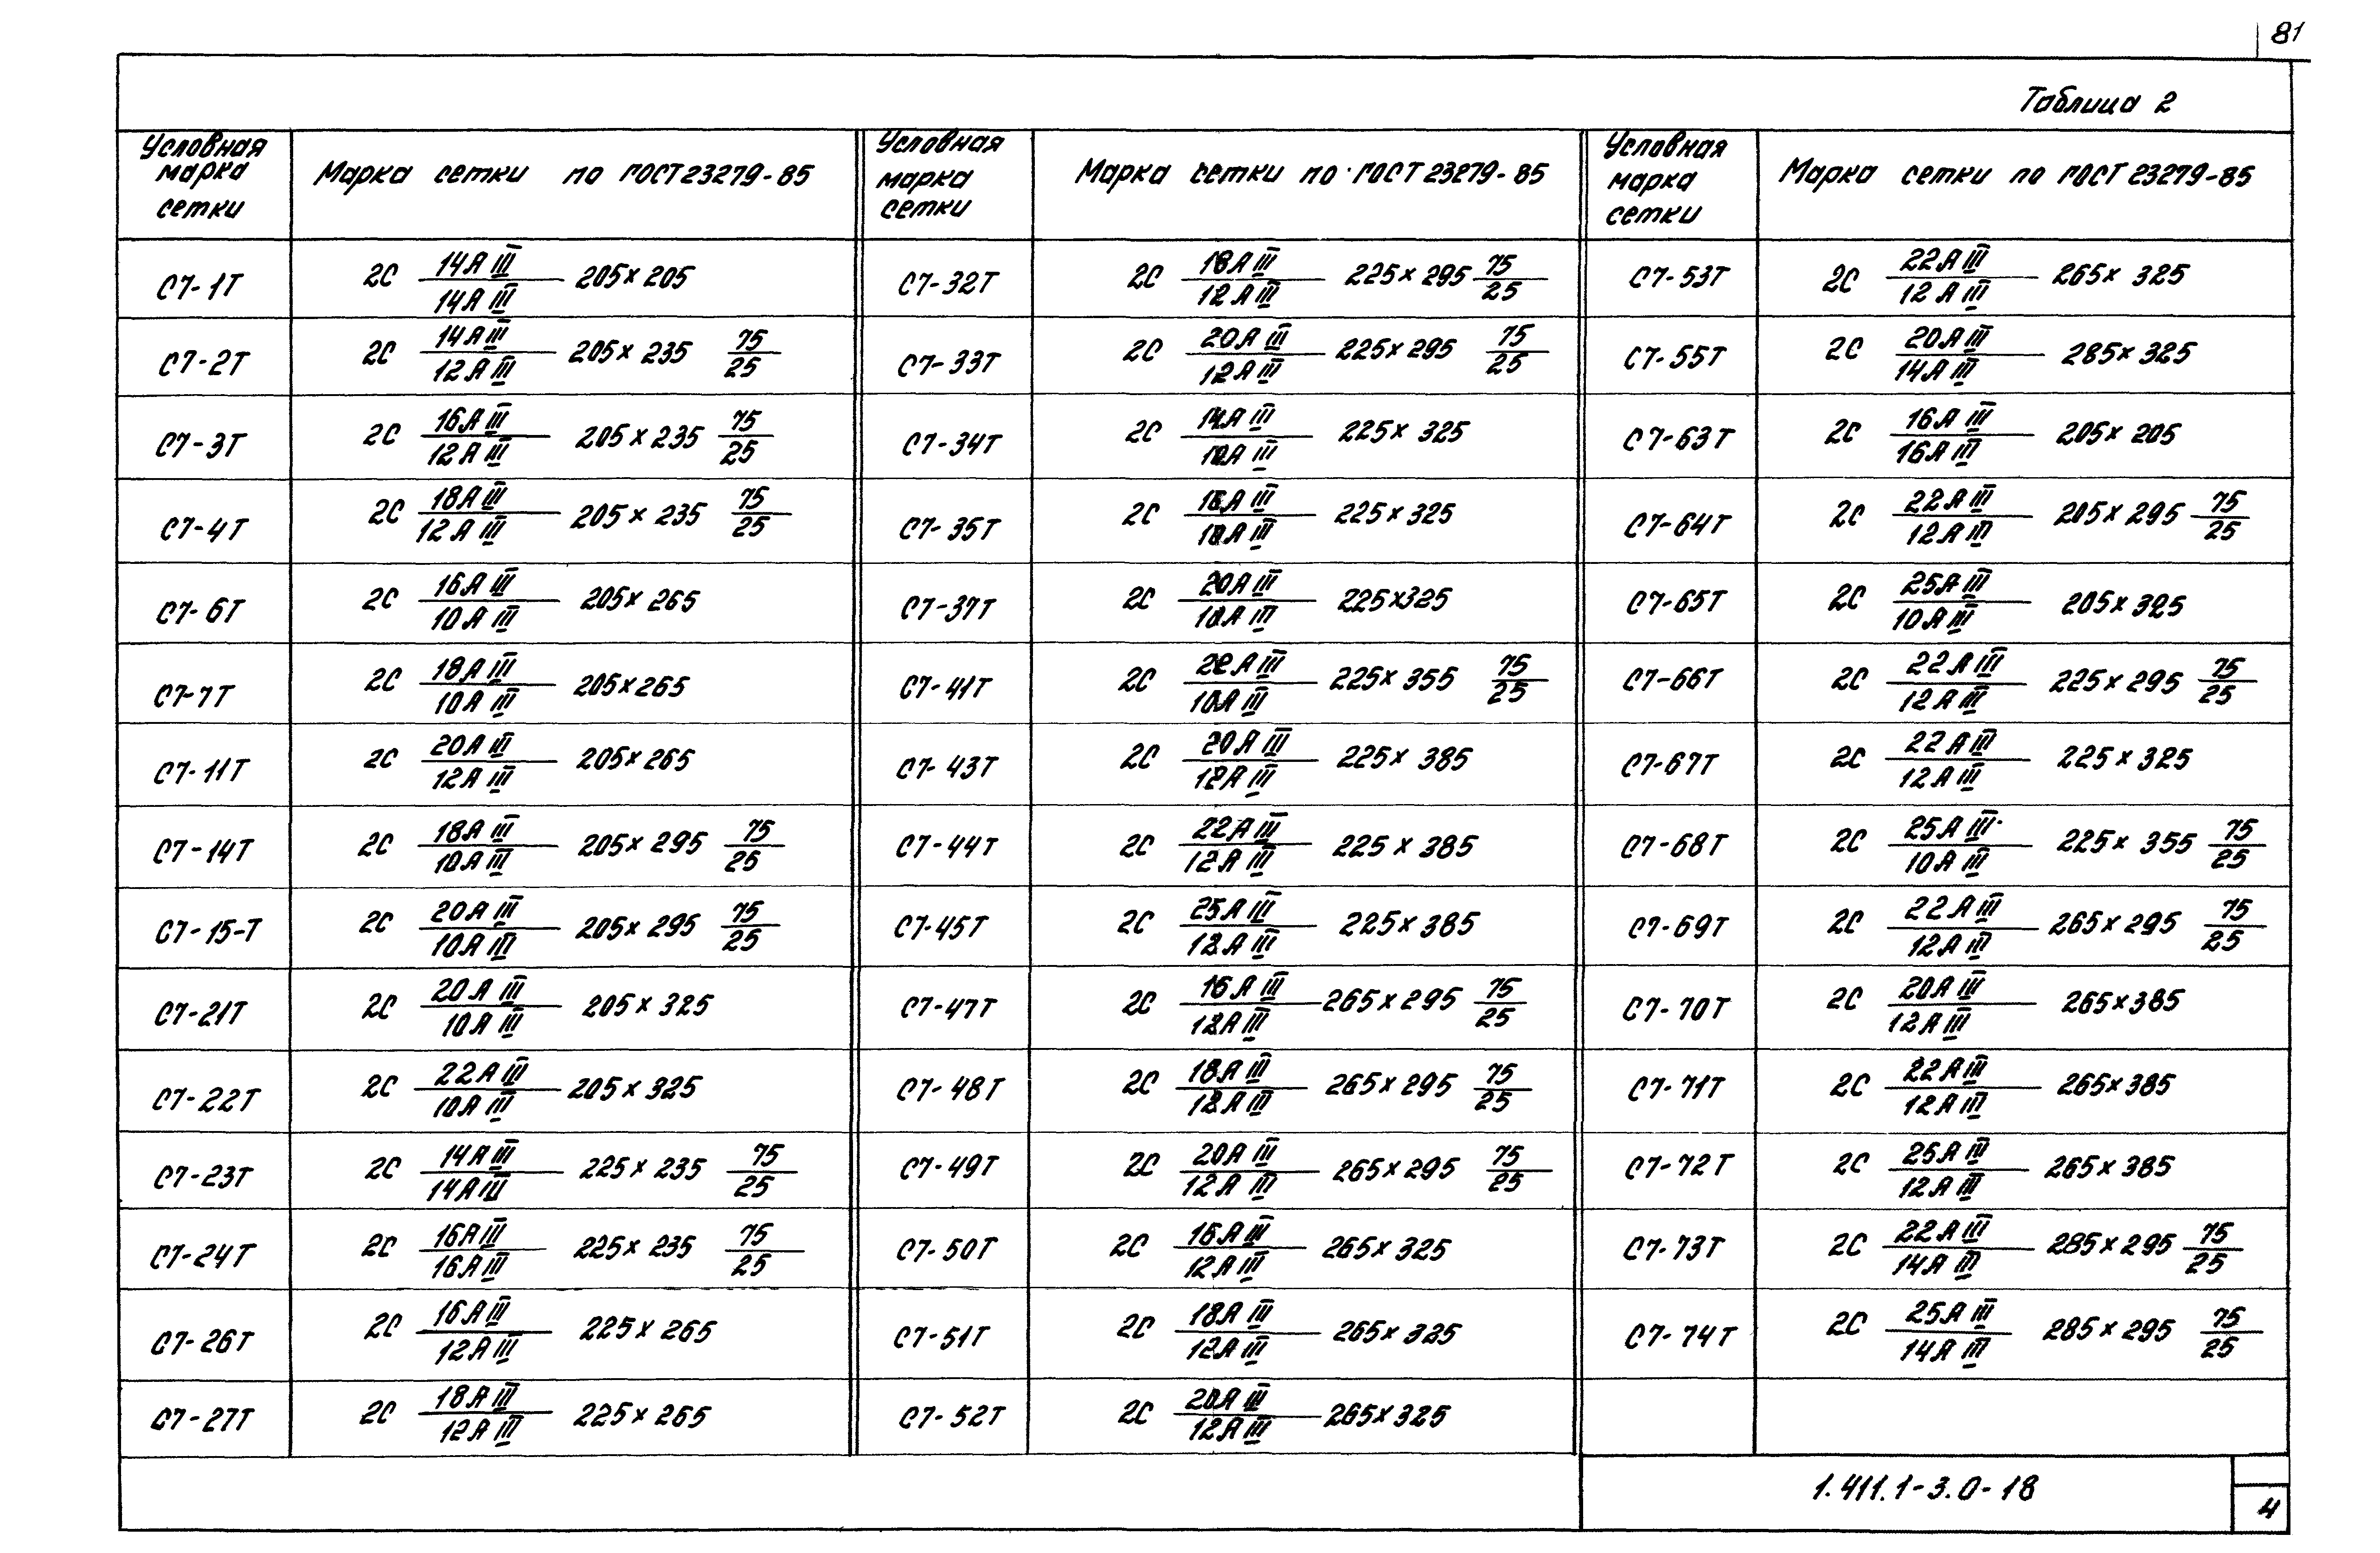 81
Таблица 2
Условная марка сетки | Марка сетки по ГОСТ 23279-85 | Условная марка сетки | Марка сетки по ГОСТ 23279-85 | Условная марка сетки | Марка сетки по ГОСТ 23279-85
С7-1Т | 2С 14АIII/14АIII 205х205 | С7-32Т | 2С 18АIII/12АIII 225х295 75/25 | С7-53Т | 2С 22АIII/12АIII 265х325
С7-2Т | 2С 14АIII/12АIII 205х235 75/25 | С7-33Т | 2С 20АIII/12АIII 225х295 75/25 | С7-55Т | 2С 20АIII/14АIII 285х325
С7-3Т | 2С 16АIII/12АIII 205х235 75/25 | С7-34Т | 2С 14АIII/10АIII 225х325 | С7-63Т | 2С 16АIII/16АIII 205х205
С7-4Т | 2С 18АIII/12АIII 205х235 75/25 | С7-35Т | 2С АIII/10АIII 225х325 | С7-64Т | 2С 22АIII/12АIII 205х295 75/25
С7-6Т | 2С 16АIII/10АIII 205х265 | С7-37Т | 2С 20АIII/10АIII 225х325 | С7-65Т | 2С 25АIII/10АIII 205х325
С7-7Т | 2С 18АIII/10АIII 205х265 | С7-41Т | 2С 22АIII/10АIII 225х355 75/25 | С7-66Т | 2С 22АIII/12АIII 225х295 75/25
С7-11Т | 2С 20АIII/12АIII 205х265 | С7-43Т | 2С 20АIII/12АIII 225х385 | С7-67Т | 2С 22АIII/12АIII 225х325
С7-14Т | 2С 18АIII/10АIII 205х295 75/25 | С7-44Т | 2С 22АIII/12АIII 225х385 | С7-68Т | 2С 25АIII/10АIII 225х355 75/25
С7-15-Т | 2С 20АIII/10АIII 205х295 75/25 | С7-45Т | 2С 25АIII/12АIII 225х385 | С7-69Т | 2С 22АIII/12АIII 265х295 75/25
С7-21Т | 2С 20АIII/10АIII 205х325 | С7-47Т | 2С 16АIII/12АIII 265х295 75/25 | С7-70Т | 2С 20АIII/12АIII 265х385
С7-22Т | 2С 22АIII/10АIII 205х325 | С7-48Т | 2С 18АIII/12АIII 265х295 75/25 | С7-71Т | 2С 22АIII/12АIII 265х385
С7-23Т | 2С 14АIII/14АIII 225х235 75/25 | С7-49Т | 2С 20АIII/12АIII 265х295 75/25 | С7-72Т | 2С 25АIII/12АIII 265х385
С7-24Т | 2С 16АIII/16АIII 225х235 75/25 | С7-50Т | 2С 16АIII/12АIII 265х325 | С7-73Т | 2С 22АIII/14АIII 285х295 75/25
С7-26Т | 2С 16АIII/12АIII 225х265 | С7-51Т | 2С 18АIII/12АIII 265х325 | С7-74Т | 2С 25АIII/14АIII 285х295 75/25
С7-27Т | 2С 18АIII/12АIII 225х265 | С7-52Т | 2С 20АIII/12АIII 265х325
1.411.1-3.0-18
4